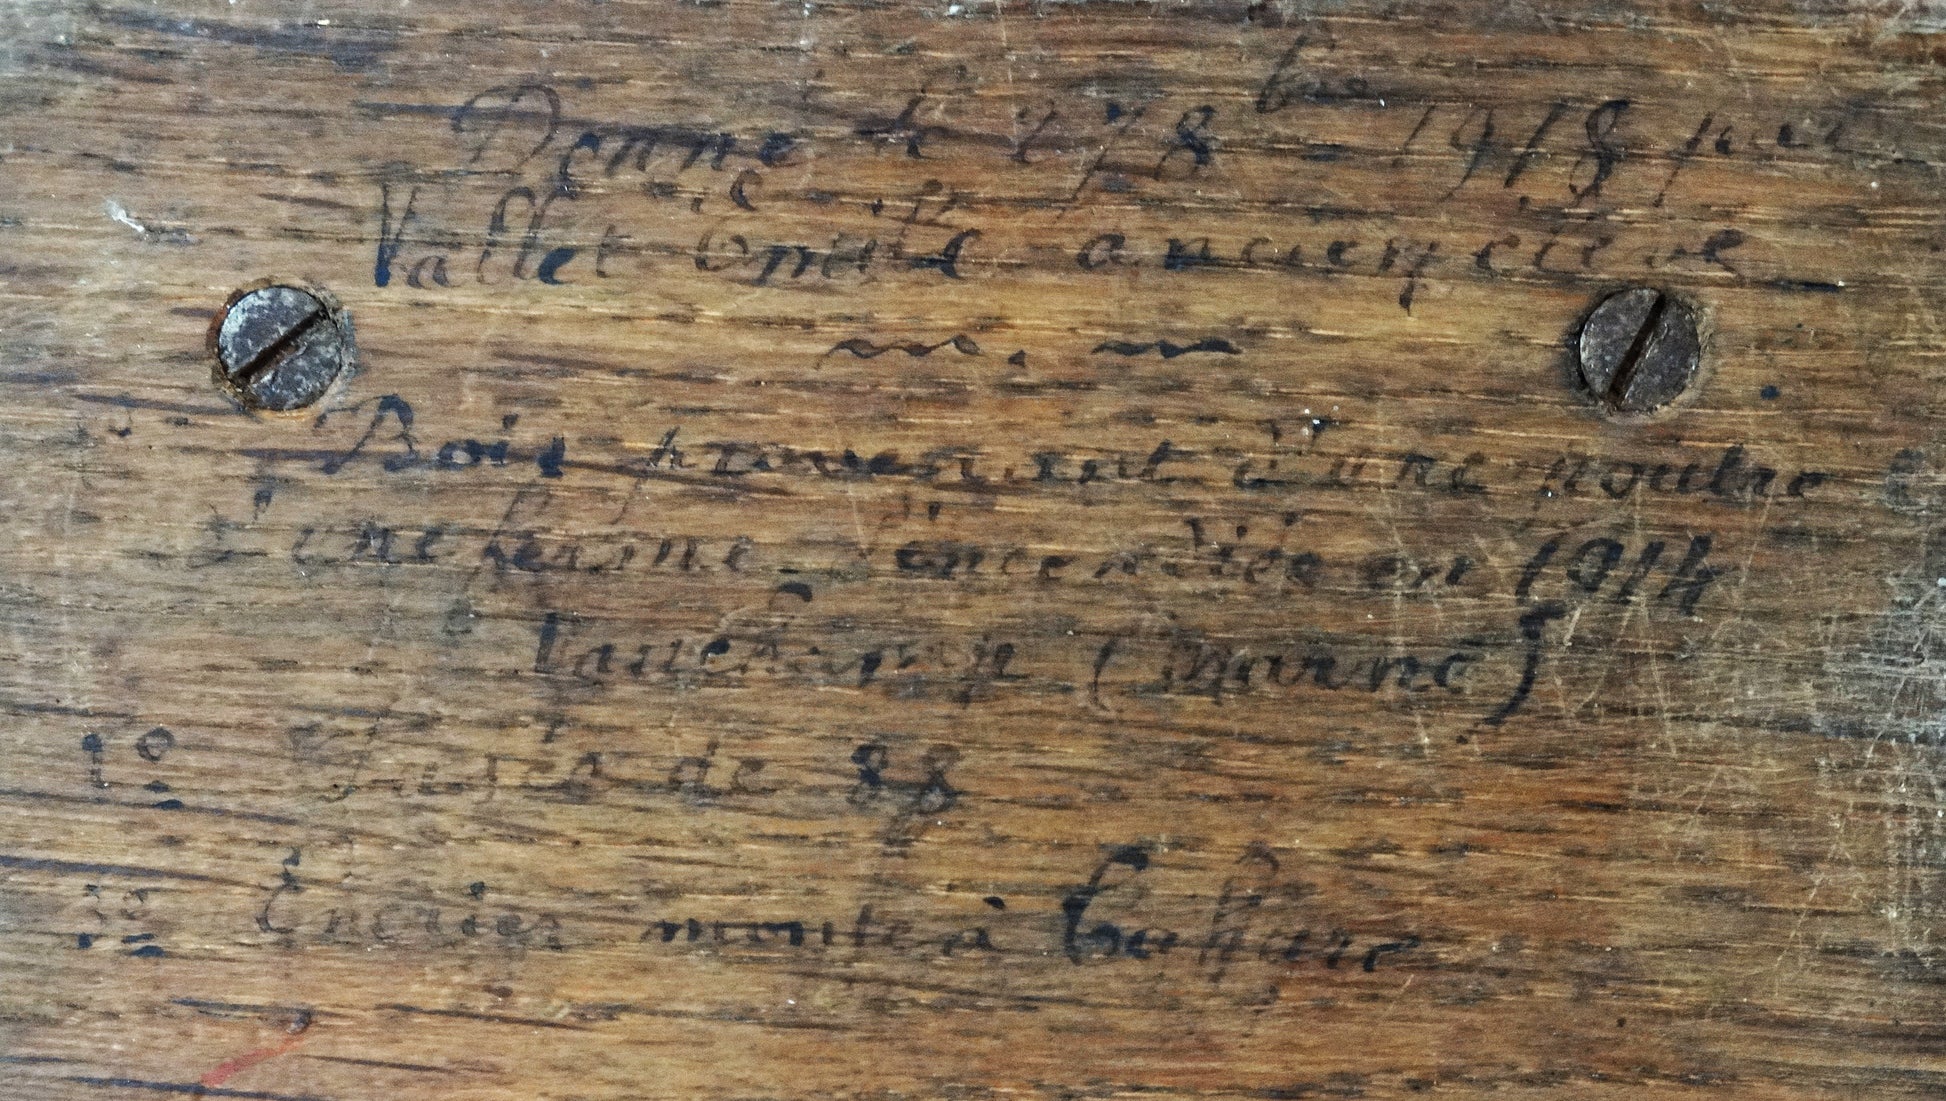 Donné le 27 8bre 1918 par
Vallet Emile ancien élève
1° Bois provenant d'une poutre
d'une ferme incendiée en 1914
Vauchamp (Marne)
Fusés de 88
3° Encrier monté à